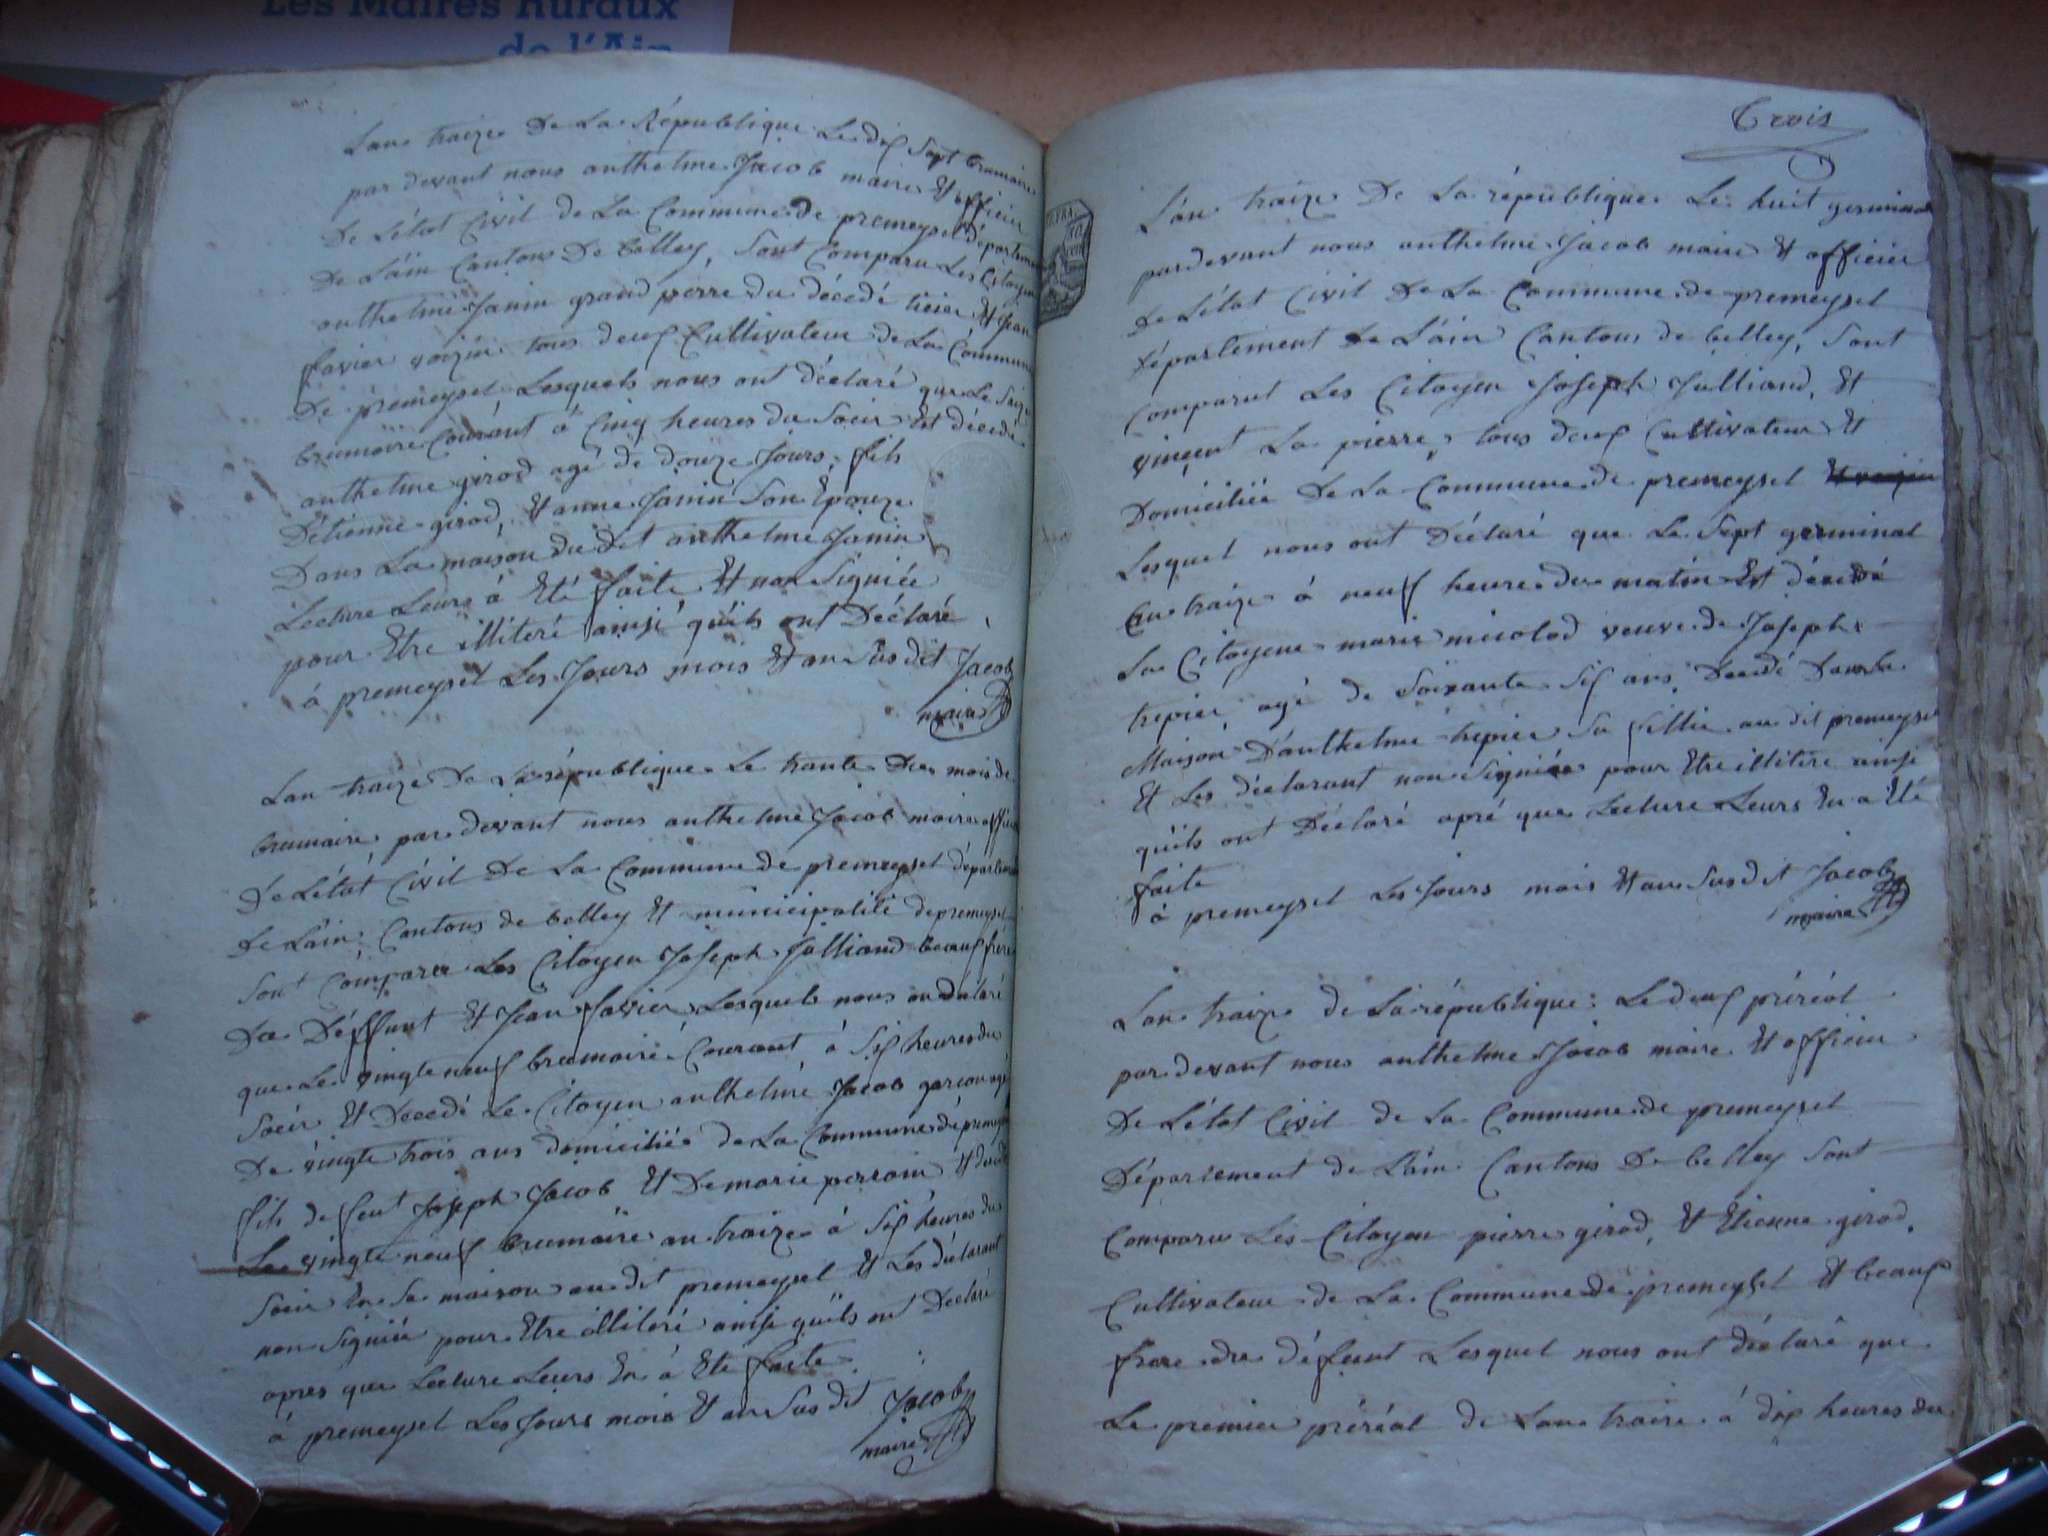 Les Maires Ruraux
de l'Ain
Lan traize De La République Le dix Sept brumaire
par devant nous anthelme Jacob maire Et officier
De Létat Civil de La Commune de premeysel départemen
De Lain Cantons De belley, Sont Comparu Les Citoyen
anthelme Janin grand perre du décedé tisier Et Jean
favier voizin tous deux Cultivateur de La Commune
De premeysel Lesquels nous ont déclaré que Le Saize
brumaire Courant à Cinq heures du Soir Est décedé
anthelme girod agé de douze Jours, fils
Détienne girod, Et anne Janin Son Epouze
Dans La maison du dit anthelme Janin
Lecture Leurs à Eté faite Et non Signiée
pour Etre illiteré ainsi quils ont Déclaré
à premeysel Les Jours mois Et an Sus dit Jacob
maire
Lan traize De La république Le trante Du mois de
brumaire par devant nous anthelme Jacob maire offici
De Létat Civil De La Commune de premeysel départemen
De Lain Cantons de belley Et municipalité de premeysel
Sont Comparu Les Citoyen Joseph Jalliand beaux frére
Du Déffunt Et Jean favier Lesquels nous on déclaré
que Le vingte neuf brumaire Courant à Six heures du
Soir Et Decedé Le Citoyen anthelme Jacob garcon agé
De vingte trois ans domiciliée de La Commune de premeysel
fils de feut Joseph Jacob Et De marie perrain Et décedé
Le vingte neuf brumaire an traize à Six heures du
Soir En Sa maison au dit premeysel Et Les déclarant
non Signiée pour Etre illiteré ainsi quils ont Declaré
apres que Lecture Leurs En à Eté faite
à premeysel Les Jours mois Et an Sus dit Jacob
maire
Trois
Lan traize De La république Le huit germinal
pardevant nous anthelme Jacob maire Et officier
De Létat Civil De La Commune de premeysel
Département De Lain Cantons de belley, Sont
Comparut Les Citoyen Joseph Julliand, Et
vinçent La pierre, tous deux Cultivateur Et
Domiciliée De La Commune de premeysel
Lesquel nous ont Déclaré que Le Sept germinal
an traize à neuf heure du matin Est décedé
La Citoyene marie micolod veuve de Joseph
trepier agé de Soixante Six ans, Decedé Dans La
Maison Danthelme trepier Sa fillie au dit premeysel
Et Les déclarant non Signiée pour Etre illitere ainsi
quils ont Déclaré apré que Lecture Leurs En a Eté
faite
à premeysel Les Jours mois Et an Sus dit Jacob
maire
Lan traize de La république Le deux préréal
par devant nous anthelme Jacob maire Et officier
De Létat Civil de La Commune de premeysel
Département de Lain Cantons De belley Sont
Comparu Les Citoyen pierre girod, Et Etienne girod,
Cultivateur de La Commune de premeysel Et beaux
frere du défeunt Lesquel nous ont déclaré que
Le premier préréal de Lan traize à dix heures du